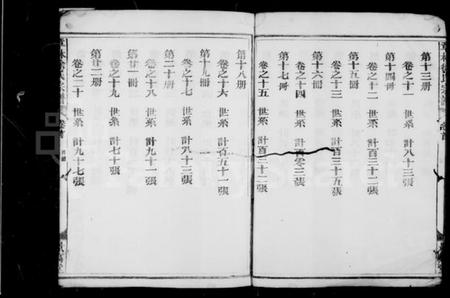 第十三册
卷之十一 世系 計八十三張
第十四册
卷之十二 世系 計百三十二張
第十五册
卷之十三 世系 計百三十五張
第十六冊
卷之十四 世系 計百零三張
第十七冊
卷之十五 世系 計百三十二張
第十八册
卷之十六 世系 計百五十一張
第十九冊
卷之十七 世系 計八十三張
第二十册
卷之十八 世系 計九十一張
第廿一冊
卷之十九 世系 計七十張
第廿二册
卷之二十 世系 計九十七張